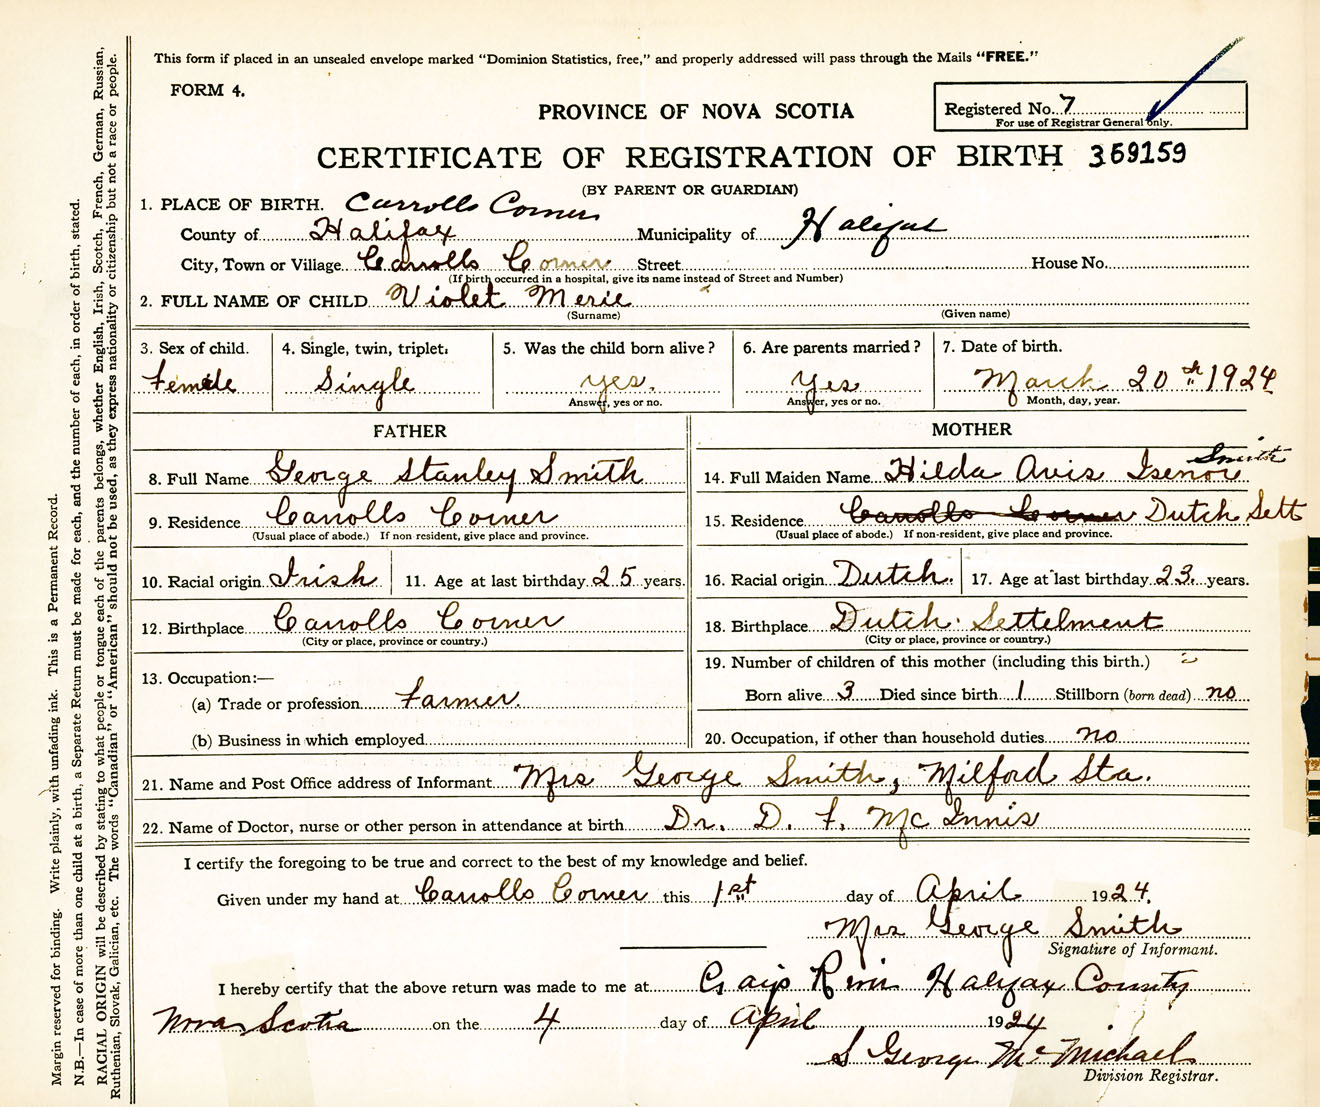 This form if placed in an unsealed envelope marked "Dominion Statistics, free," and properly addressed will pass through the Mails "FREE."
FORM 4.
PROVINCE OF NOVA SCOTIA
Registered No. 7
For use of Registrar General only.
CERTIFICATE OF REGISTRATION OF BIRTH 359159
(BY PARENT OR GUARDIAN)
1. PLACE OF BIRTH. Carrolls Corner
County of Halifax Municipality of Halifax
City, Town or Village Carrolls Corner Street House No.
(If birth occurred in a hospital, give its name instead of Street and Number)
2. FULL NAME OF CHILD Violet Merie
(Surname) (Given name)
3. Sex of child. 4. Single, twin, triplet. 5. Was the child born alive? 6. Are parents married? 7. Date of birth.
Female Single yes. Yes March 20th 1924
Answer, yes or no. Answer, yes or no. Month, day, year.
FATHER MOTHER
Smith
8. Full Name George Stanley Smith 14. Full Maiden Name Hilda Avis Isenor
9. Residence Carrolls Corner 15. Residence Carrolls Corner Dutch Sett
(Usual place of abode.) If non-resident, give place and province. (Usual place of abode.) If non-resident, give place and province.
10. Racial origin Irish 11. Age at last birthday 25 years. 16. Racial origin Dutch. 17. Age at last birthday 23 years.
12. Birthplace Carrolls Corner 18. Birthplace Dutch Settelment
(City or place, province or country.) (City or place, province or country.)
19. Number of children of this mother (including this birth.)
13. Occupation:—
(a) Trade or profession Farmer. Born alive 3 Died since birth 1 Stillborn (born dead) no
(b) Business in which employed 20. Occupation, if other than household duties no
21. Name and Post Office address of Informant Mrs George Smith, Milford Sta.
22. Name of Doctor, nurse or other person in attendance at birth Dr. D. F. McInnis
I certify the foregoing to be true and correct to the best of my knowledge and belief.
Given under my hand at Carrolls Corner this 1st day of April 1924.
Mrs George Smith
Signature of Informant.
I hereby certify that the above return was made to me at Halifax County
Nova Scotia on the 4 day of April 1924
S George McMichael
Division Registrar.
Margin reserved for binding. Write plainly, with unfading ink. This is a Permanent Record.
N.B.—In case of more than one child at a birth, a Separate Return must be made for each, and the number of each, in order of birth, stated.
RACIAL ORIGIN will be described by stating to what people or tongue each of the parents belongs, whether English, Irish, Scotch, French, German, Russian,
Ruthenian, Slovak, Galician, etc. The words "Canadian" or "American" should not be used, as they express nationality or citizenship but not a race or people.